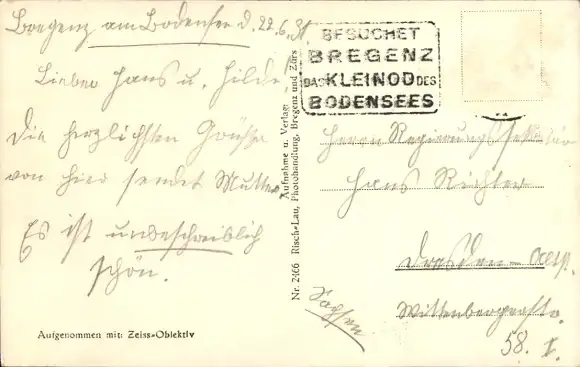 Bregenz am Bodensee d. 22.6.31.
Lieber Hans u. Hilde
Die herzlichsten Grüße
von hier sendet Mutter.
Es ist unbeschreiblich
schön.
Aufgenommen mit: Zeiss-Objektiv
Nr. 2466 Risch-Lau, Photohandlung, Bregenz und Zürs
Aufnahme u. Verlag:
BESUCHET
BREGENZ
DAS KLEINOD DES
BODENSEES
Herrn Regierungssekretär
Hans Richter
Dresden-
Wittenbergerstr.
58. I.
Sachsen